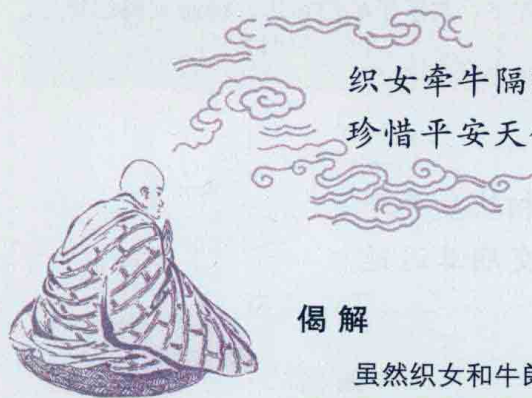 织女牵牛隔
珍惜平安天
偈解
虽然织女和牛郎